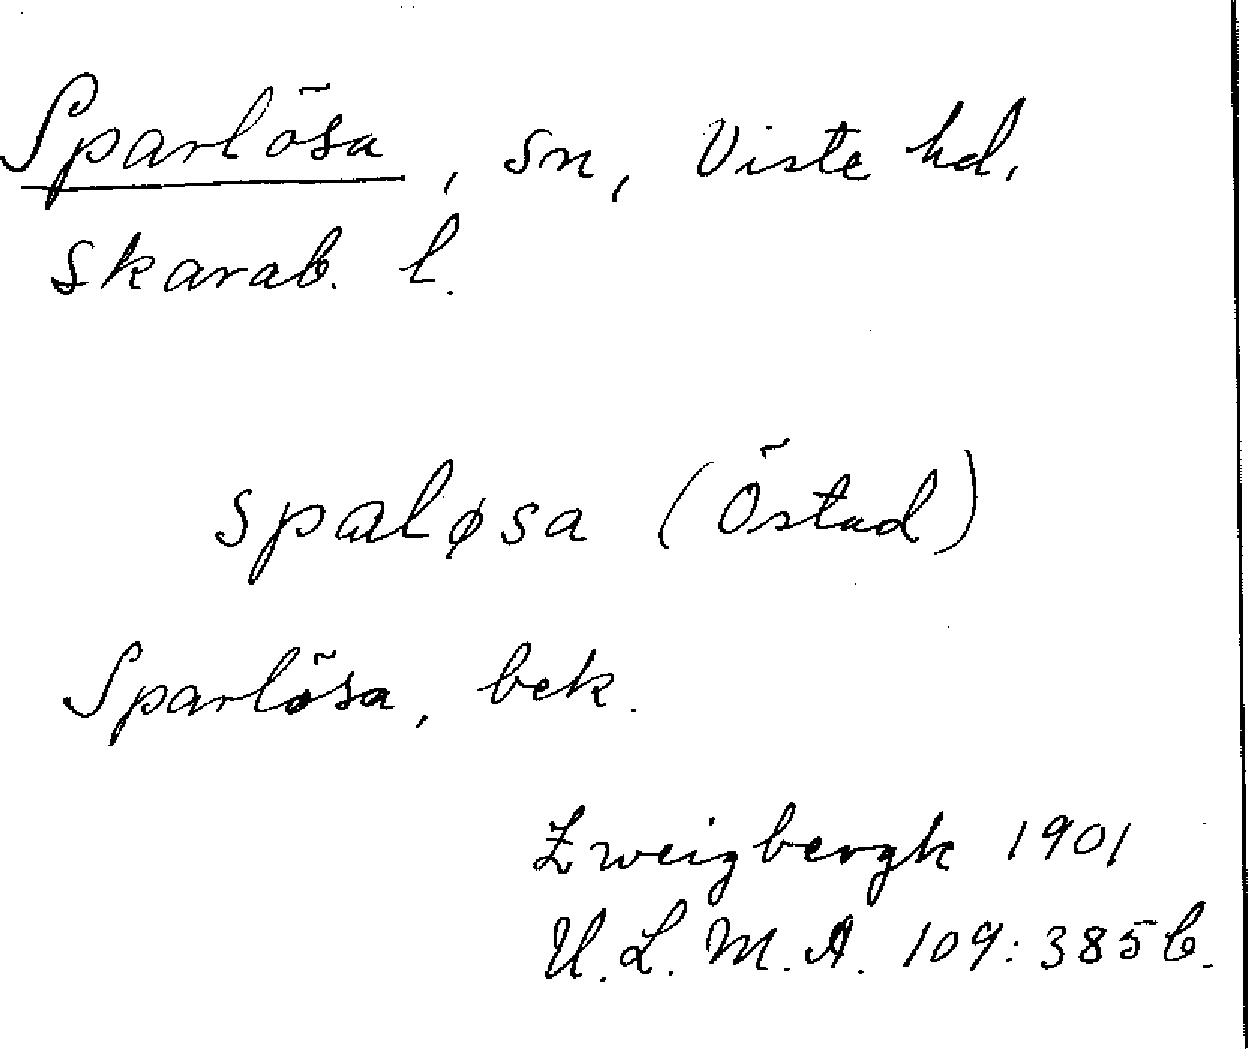 Sparlösa, sn, Viste hd,
Skarab. l.
spaløsa (Östad)
Sparlösa, bek.
Zweigbergk 1901
U.L.M.A. 109:385b.